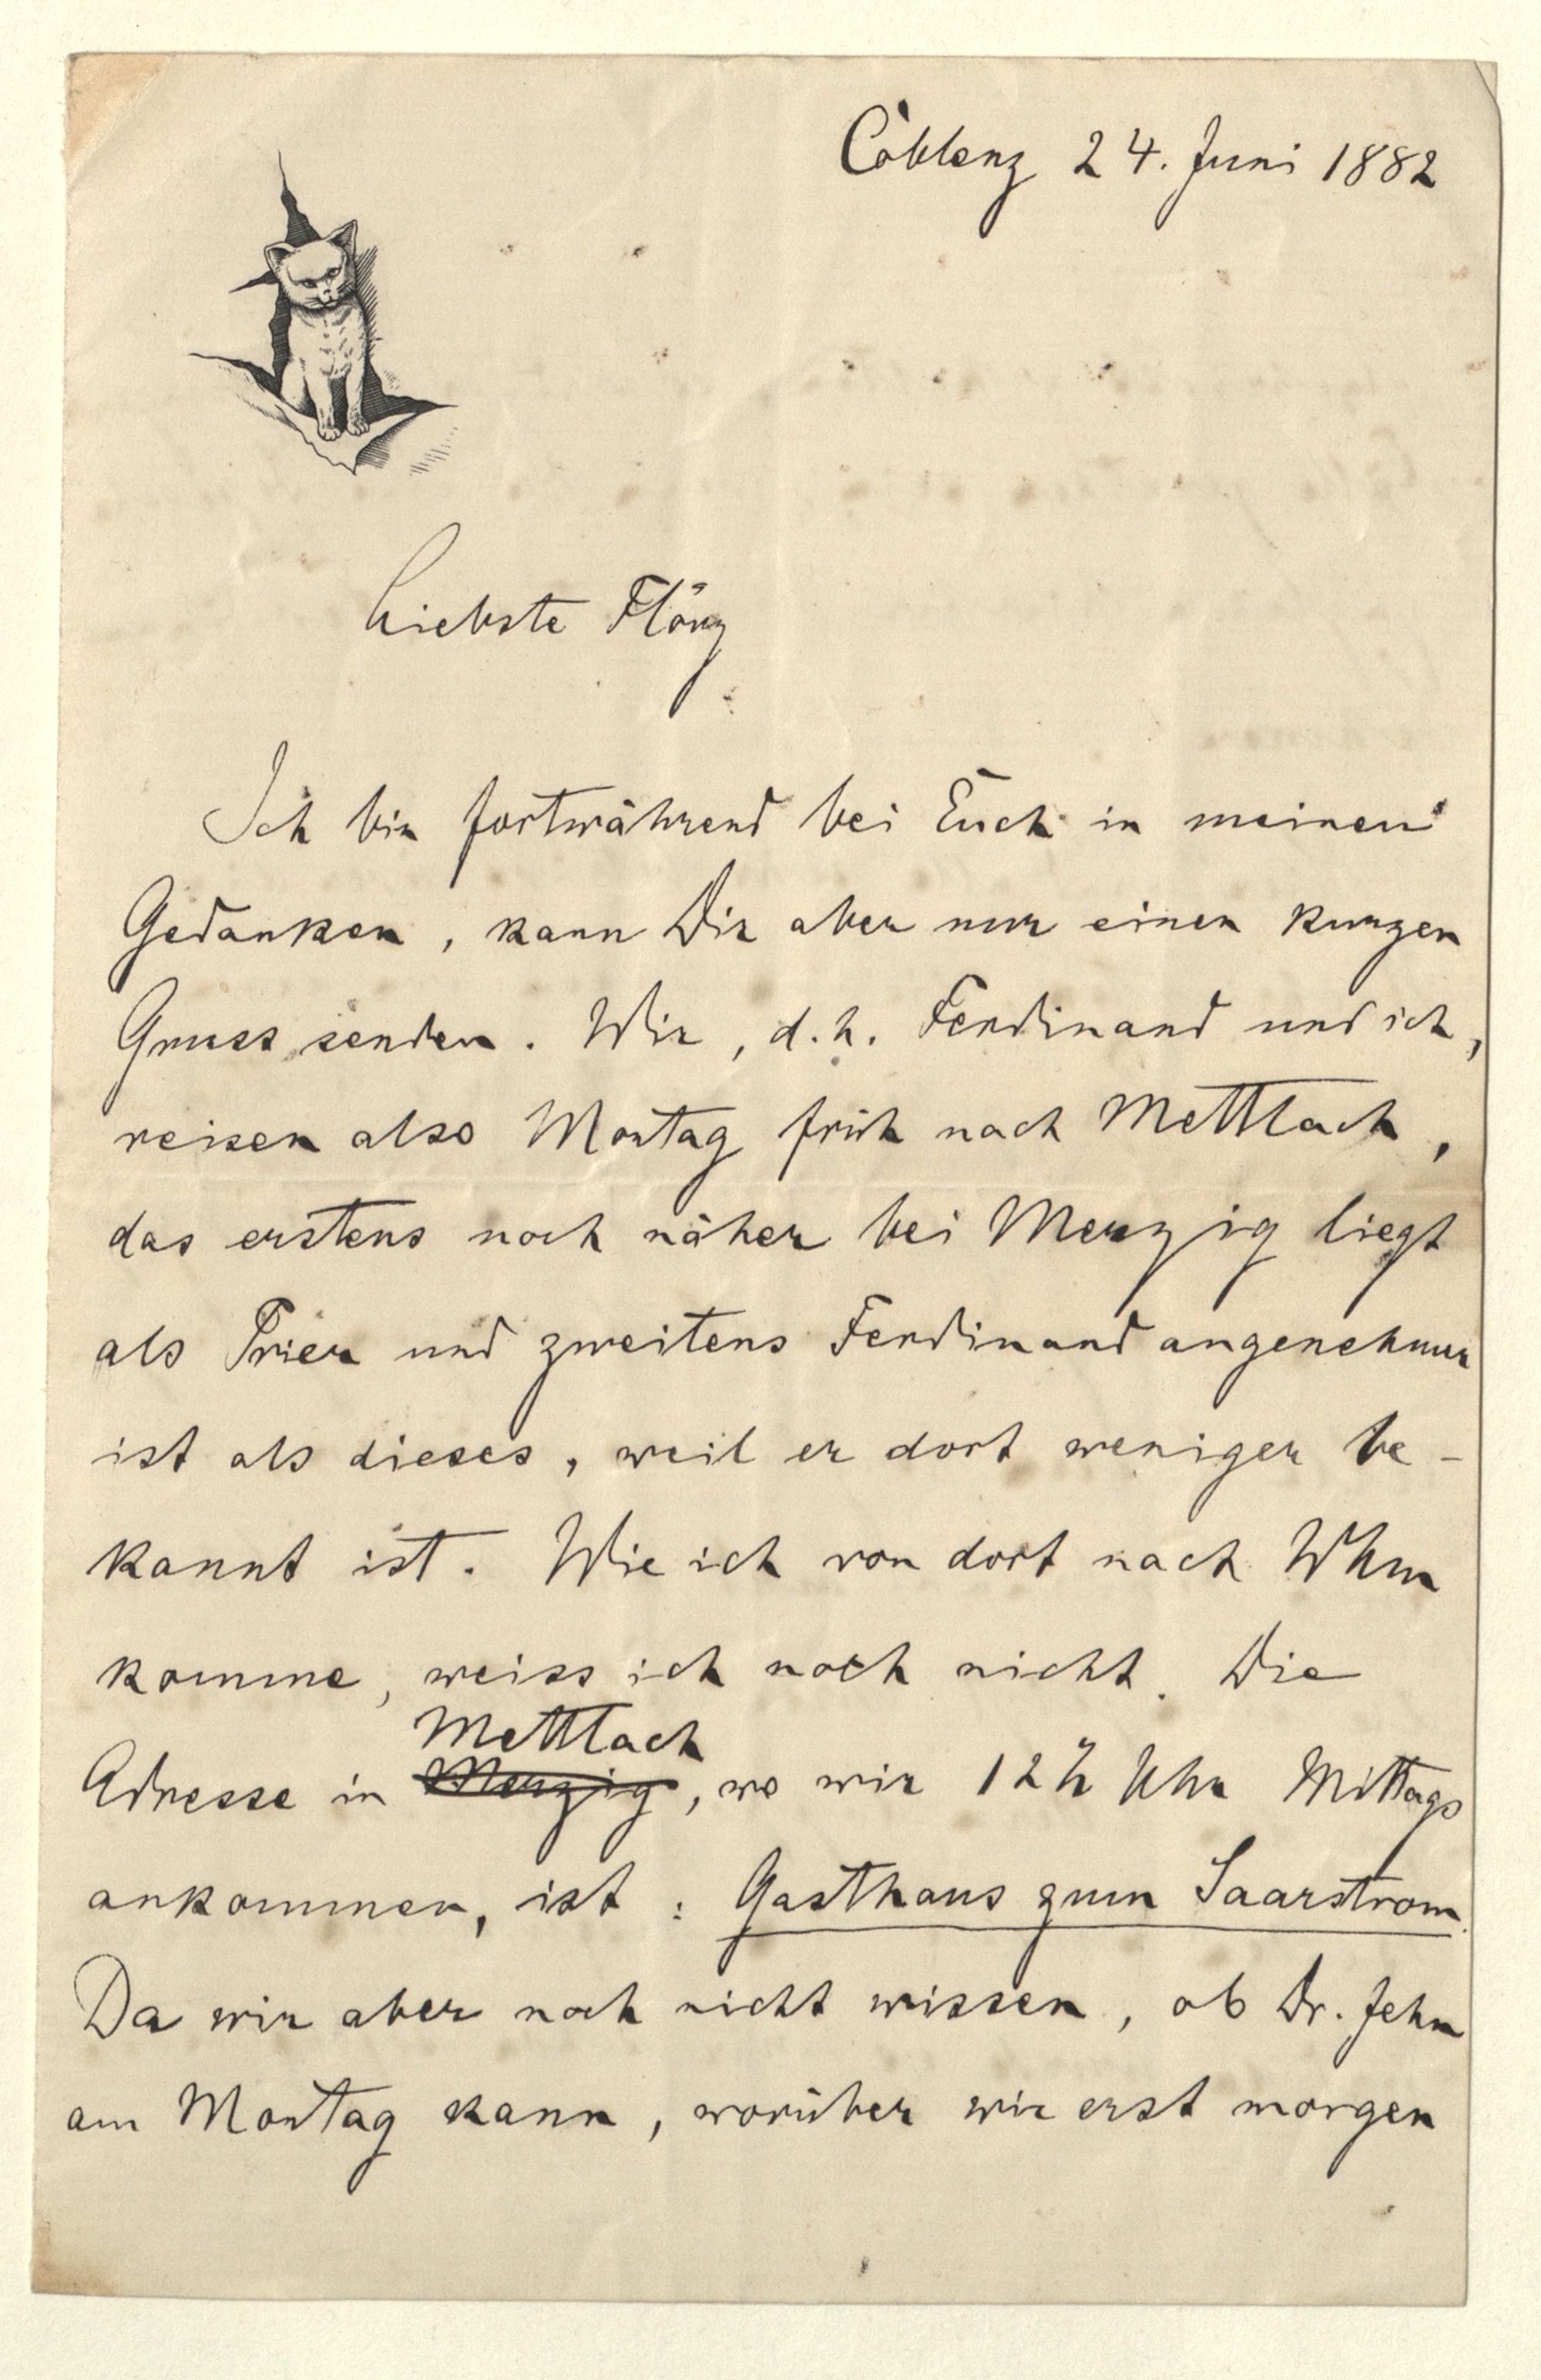 Coblenz 24. Juni 1882
Liebste Flönz
Ich bin fortwährend bei Euch in meinen
Gedanken, kann Dir aber nur einen kurzen
Gruss senden. Wir, d.h. Ferdinand und ich,
reisen also Montag früh nach Mettlach,
das erstens noch näher bei Merzig liegt
als Trier und zweitens Ferdinand angenehmer
ist als dieses, weil er dort weniger be-
kannt ist. Wie ich von dort nach
komme, weiss ich noch nicht. Die
Mettlach
Adresse in Merzig, wo wir Uhr Mittags
ankommen, ist: Gasthaus zum Saarstrom.
Da wir aber noch nicht wissen, ob Dr. Jehn
am Montag kann, worüber wir erst morgen